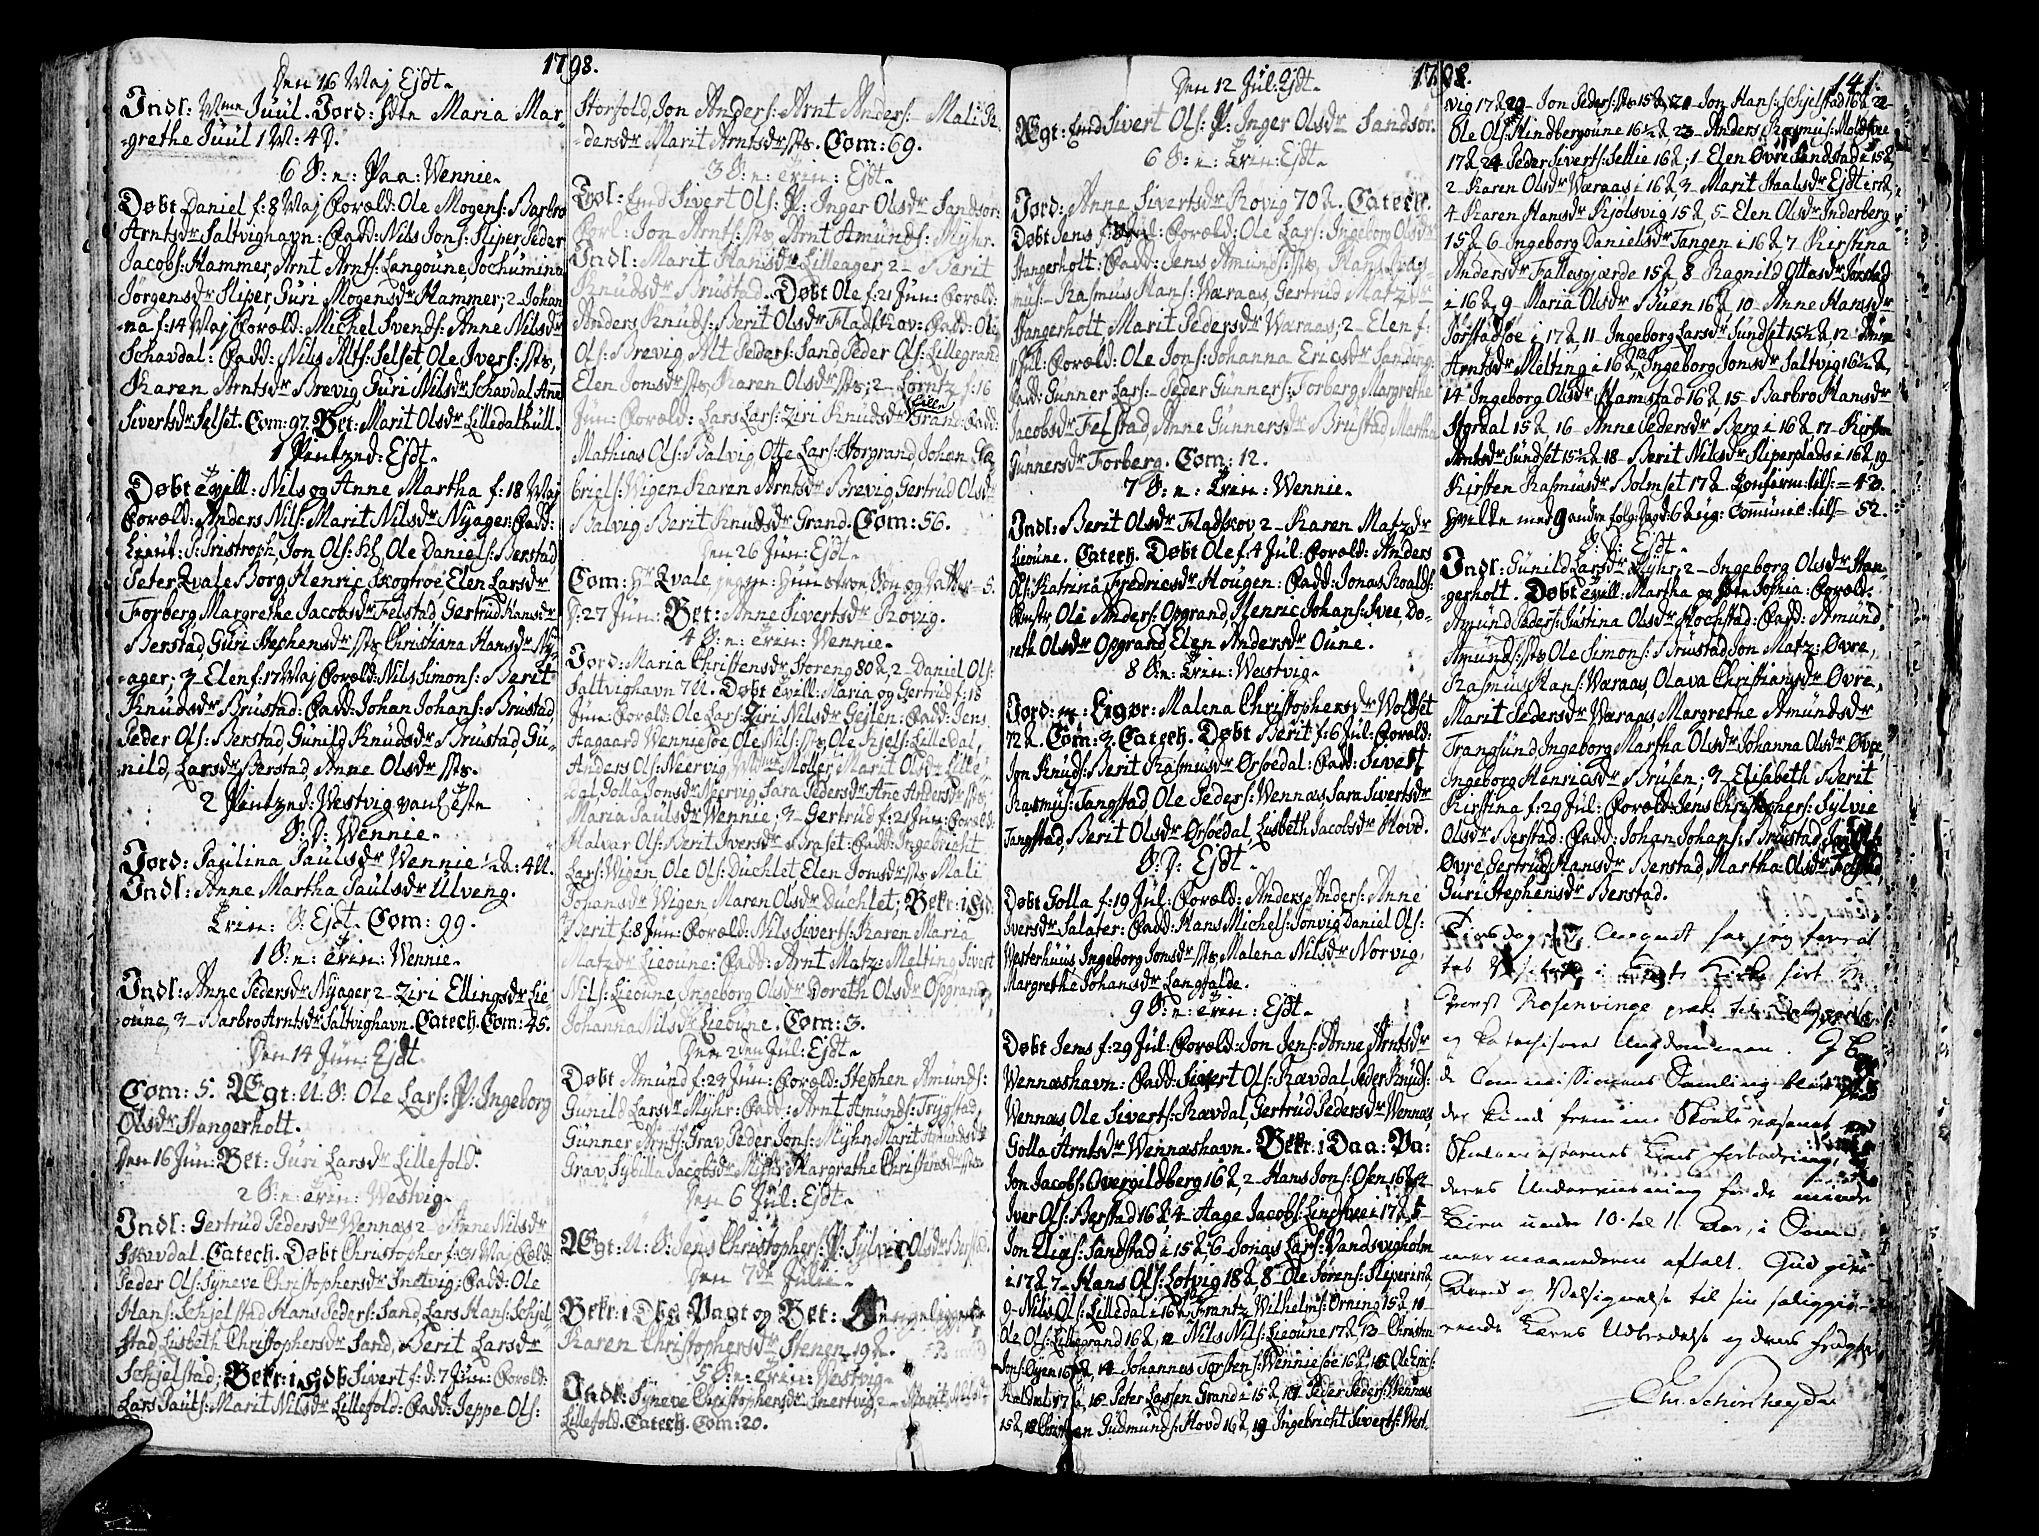 1798.
Den 16 Maj Ejdt.
Indl: Mme Juul. Jord: Maria Mar-
-grethe Juul 1 M: 4 D.
6 S: n: Paa: Wennie.
Døbt Daniel f: 8 Maj Foræld: Ole Mogens: Barbro
Arntsdr Saltvighavn: Fadd: Nils Jons: Sliper Peder
Jacobs: Hammer, Arnt Arnts: Langoune Jochumina
Jörgensdr Sliper, Guri Mogensdr Hammer; 2- Johan
-na f: 14 Maj Foræld: Michel Svends: Anne Nilsdr
Schavdal: Fadd: Nils Alfs: Selset, Ole Ivers: sts,
Karen Arntsdr Brevig, Guri Nilsdr Schavdal Anne
Sivertsdr Selset. Com: 97. Bet: Marit Olsdr Lilledalhull.
1 Pintzed: Ejdt.
Døbt tvill: Nils og Anne Martha f: 18 Maj
Foræld: Anders Nils: Marit Nilsdr Nyager: Fadd:
Lieut: Ristroph, Jon Ols: Ole Daniels: Berstad
Peter Qvale Borg Henric Skogtroe, Elen Larsdr
Forberg Margrethe Jacobsdr Felstad, Gertrud Hansdr
Berstad, Guri Stephensdr sts Christiana Hansdr Ny-
-ager; 3- Elen f: 17 Maj Foræld: Nils Simons: Berit
Knudsdr Brustad: Fadd: Johan Johans: Brustad,
Peder Ols: Berstad, Gunild Knudsdr Brustad, Gu-
-nild, Larsdr Berstad, Anne Olsdr sts.
2 Pintzed: Westvig
S: D: Wennie.
Jord: Paulina Paulsdr Wennie
Indl: Anne Martha Paulsdr Ulveng.
Trin: S: Ejdt. Com: 99.
1 S: n: trin: Wennie.
Indl: Anne Pedersdr Nyager 2- Ziri Ellingsdr Lie
-oune 3- Barbro Arntsdr Saltvighavn. Catech. Com: 45.
Den 14 Jun: Ejdt
Com: 5. Ægt: U: S: Ole Lars: P: Ingeborg
Olsdr Hangerholt.
Den 16 Jun: Bet: Guri Larsdr Lillefold.
2 S: n: trin: Westvig.
Indl: Gertrud Pedersdr Wennæs 2- Anne Nilsdr
Skavdal. Catech. Døbt Christopher f: 31 Maj Foræld:
Peder Ols: Syneve Christophersdr Snetvig: Fadd: Ole
Hans: Schjelstad Hans Peders: Sand, Lars Hans: Schjel
stad Lisbeth Christophersdr Sand, Berit Larsdr
Schjelstad; Bekr: i Hdb Sivert f: d: 7 Jun: Foræld:
Lars Pauls: Marit Nilsdr Lillefold: Fadd: Jeppe Ols:
Storfold, Jon Anders: Arnt Anders: Mali
-dersdr Marit Arntsdr sts. Com: 69.
3 S: n: trin: Ejdt.
Trol: Sivert Ols: P: Inger Olsdr Sandsør:
Forl: Jon Arnts: sts Arnt Amunds: Myhr.
Indl: Marit Hansdr Lilleager, 2- Berit
Knudsdr Brustad. Døbt Ole f: 21 Jun: Foræld:
Anders Knuds: Berit Olsdr Fladskov: Fadd: Ole
Ols: Brevig Alt Peders: Sand Peder Ols: Lillegrand
Elen Jonsdr sts Karen Olsdr sts; 2- Lorntz f: 16
Jun: Foræld: Lars Lars: Ziri Knudsdr Lille Grand: Fadd:
Mathias Ols: Salvig Otte Lars: Storgrand Johan Ga-
briels: Wigen Karen Arntsdr Brevig Gertrud Olsdr
Salvig Berit Knudsdr Grand. Com: 56.
Den 26 Jun: Ejdt.
Com: Hr Qvale
D: 27 Jun: Bet: Anne Sivertsdr Rovig.
4 S: n: trin: Wennie.
Jord: Maria Christensdr Storeng 80 2, 2- Daniel Ols:
Saltvighavn 7 U. Døbt tvill: Maria og Gertrud f: 18
Jun: Foræld: Ole Lars: Ziri Nilsdr Gejlen: Fadd: Jens
Aagaard Wenniesøe Ole Nils: sts Ole Kjels: Lilledal,
Anders Ols: Neervig, Møller Marit Olsdr Lille-
dal, Golla Jonsdr Neervig, Sara Pedersdr Ane Andersdr sts
Maria Paulsdr Wennie; 3- Gertrud f: 21 Jun: Foræld:
Halvar Ols: Berit Iversdr Braset: Fadd: Ingebricht
Lars: Wigen Ole Ols: Duchlet Elen Jonsdr sts Mali
Johansdr Wigen Maren Olsdr Duchlet; Bekr: i Hd:
Berit f: 8 Jun: Foræld: Nils Siverts: Karen Maria
Matzdr Lieoune: Fadd: Arnt Matz: Melting Sivert
Nils: Lieoune Ingeborg Olsdr Doreth Olsdr Opgrand,
Johanna Nilsdr Lieoune. Com: 3.
Den 2den Jul: Ejdt.
Døbt Amund f: 23 Jun: Foræld: Stephen Amunds:
Gunild Larsdr Myhr: Fadd: Arnt Amunds: Trygstad,
Gunner Arnts: Grav, Peder Jons: Myhr Marit Amundsdr
Grav, Sybilla Jacobsdr Myhr Margrethe Christensdr
Den 6 Jul: Ejdt.
Ægt: U: S: Jens Christophers: P: Sylvie Olsdr Berstad.
Den 7de Julii.
Bekr: i Dbg Pagt og Bet:
Karen Christophersdr Stenen 19 2.
5 S: n: trin: Westvig.
Indl: Syneve Christophersdr Snertvig, 2- Marit Nilsdr
Lillefold. Catech. Com: 20.
1798.
Den 12 Jul: Ejdt.
Ægt: Sivert Ols: P: Inger Olsdr Sandsør.
6 S: n: Trin: Ejdt.
Jord: Anne Sivertsdr Rovig 70 2. Catech.
Døbt Jens Foræld: Ole Lars: Ingeborg Olsdr
Hangerholt: Fadd: Jens Amunds: sts, Hans Ras-
mus: Rasmus Hans: Wæraas, Gertrud Matzdr
Hangerholt Marit Pedersdr Wæraas; 2- Elen f:
Jul: Foræld: Ole Jons: Johanna Ericsdr Sanding:
Fadd: Gunner Lars: Peder Gunners: Forberg Margrethe
Jacobsdr Felstad, Anne Gunnersdr Brustad Martha
Gunnersdr Forberg. Com: 12.
7 S: n: Trin: Wennie.
Indl: Berit Olsdr Fladskov 2- Karen Matzdr
Lieoune. Catech. Døbt Ole f: 4 Jul: Foræld: Anders
Ols: Katrina Fredricsdr Hougen: Fadd: Jonas Roalds:
Ole Anders: Opgrand, Henric Johans: Svee Do-
reth Olsdr Opgrand Elen Andersdr Oune.
8 S: n: Trin: Westvig.
Jord: m: Ligpr: Malena Christophersdr Woldset
72 2. Com: 3. Catech. Døbt Berit f: 6 Jul: Foræld:
Jon Knuds: Berit Rasmusdr Orsøedal: Fadd: Sivert
Rasmus: Tangstad Ole Peders: Wennæs Sara Sivertsdr
Tangstad, Berit Olsdr Orsøedal, Lisbeth Jacobsdr Hovd.
S: D: Ejdt.
Døbt Golla f: 19 Jul: Foræld: Anders Anders: Anne
Iversdr Salater: Fadd: Hans Michels: Jonvig Daniel Ols:
Westerhuus Ingeborg Jonsdr sts Malena Nilsdr Norvig,
Margrethe Johansdr Langfalde.
9 S: n: trin: Ejdt.
Døbt Jens f: 29 Jul: Foræld: Jon Jens: Anne Arntsdr
Wennæshavn: Fadd: Sivert Ols: Rævdal Peder Knuds:
Wennæs, Ole Siverts: Rævdal, Gertrud Pedersdr Wennæs,
Golla Arntsdr Wennæshavn. Bekr: i Daa: Pa:
Jon Jacobs: Overgildberg 16 2, 2- Hans Jons: Osen 16 2 3-
Iver Ols: Berstad 16 2 4- Aage Jacobs: Lindsvee i 17 2, 5-
Jon Elias: Sandstad i 15 2 6- Jonas Lars: Vandsvigholm
i 17 2 7- Hans Ols: Lotvig 18 2, 8- Ole Sørens: Sliper i 17 2
9- Nils Ols: Lilledal i 16 2 Frantz Wilhelms: Orning 15 2 10-
Ole Ols: Lillegrand 16 2, 12- Nils Nils: Lieoune 17 2 13- Christen
Jons: Oyen 16 2, 14- Johannes Torstens: Wenniesøe 16 2, 15- Ole
Kaldal 17 2, 16- Peter Larssen Grand i 15 2 17- Peder Peders: Wennæs
15 2, 18 Christen Gudmunds: Hovd 16 2, 19 Ingebricht Siverts: West-
141.
vig 17 2 20- Jon Peders: sts 15 2 21- Jon Hans: Schjelstad 16 2 22-
Ole Ols: Hindbergoune 16½ 2 23- Anders Rasmus: Moldsvee
17 2 24- Peder Siverts: Sellie 16 2; 1- Elen Øvre Sandstad i 15 2
2- Karen Olsdr Wæraas i 16 2, 3- Marit Haalsdr Ejdt i 17 2,
4 Karen Hansdr Kjolsvig 15 2, 5- Elen Olsdr Inderberg
15 2 6- Ingeborg Danielsdr Tangen i 16 2 7- Kirstina
Andersdr Fallasgjærde 15 2 8- Ragnild Ottesdr
i 16 2, 9- Maria Olsdr Buen 16 2, 10- Anne Hansdr
Jorstadsøe i 17 2, 11- Ingeborg Larsdr Sundset 15½ 2, 12- Anne
Arntsdr Melting i 16 2, 13 Ingeborg Jonsdr Saltvig 16½ 2,
14 Ingeborg Olsdr Hamstad 16 2, 15- Barbro Hansdr
Hordal 15 2 16- Anne Pedersdr Berg i 16 2 17- Kirsten
Arntsdr Sundset 15½ 2 18- Berit Nilsdr Sliperplads i 16 2, 19
Kirsten Rasmusdr Bolmset 17 2. Confirm: till: = 43.
Hvilke med 9 andre Communic: till = 52.
S: D: Ejdt.
Indl: Gunild Larsdr Myhr, 2- Ingeborg Olsdr Han-
-gerholt. Døbt tvill: Martha og Sophia: Foræld:
Amund Peders: Justina Olsdr Hochstad: Fadd: Amund,
Amunds: sts Ole Simons: Brustad Jon Matz: Øvre,
Rasmus Hans: Wæraas, Olava Christiansdr Øvre,
Marit Pedersdr Wæraas, Margrethe Amundsdr
Trangsund Ingeborg Martha Olsdr Johanna Olsdr Øvre,
Ingeborg Henricsdr Brusen; 3- Elisabeth Berit
Kirstina f: 29 Jul: Foræld: Jens Christophers: Sylvie
Olsdr Berstad: Fadd: Johan Johans: Brustad,
Øvre Gertrud Hansdr Berstad, Martha Olsdr Felstad,
Guri Stephensdr Berstad.
Tirsdag August har jeg forret-
tet Visitatz i Kirke hvor Hr
Rosenvinge
og Katechiserede Ungdommen.
Commissionens Samling blev
Skolevæsenet
forbedring,
deres Underviisning for de mindre
Børn under 10 til 11 Aar, i Som-
mermaanederne aftalt. Gud give
og Velsignelse til sin saliggiø-
rende Læres Udbredelse og dens Frugter